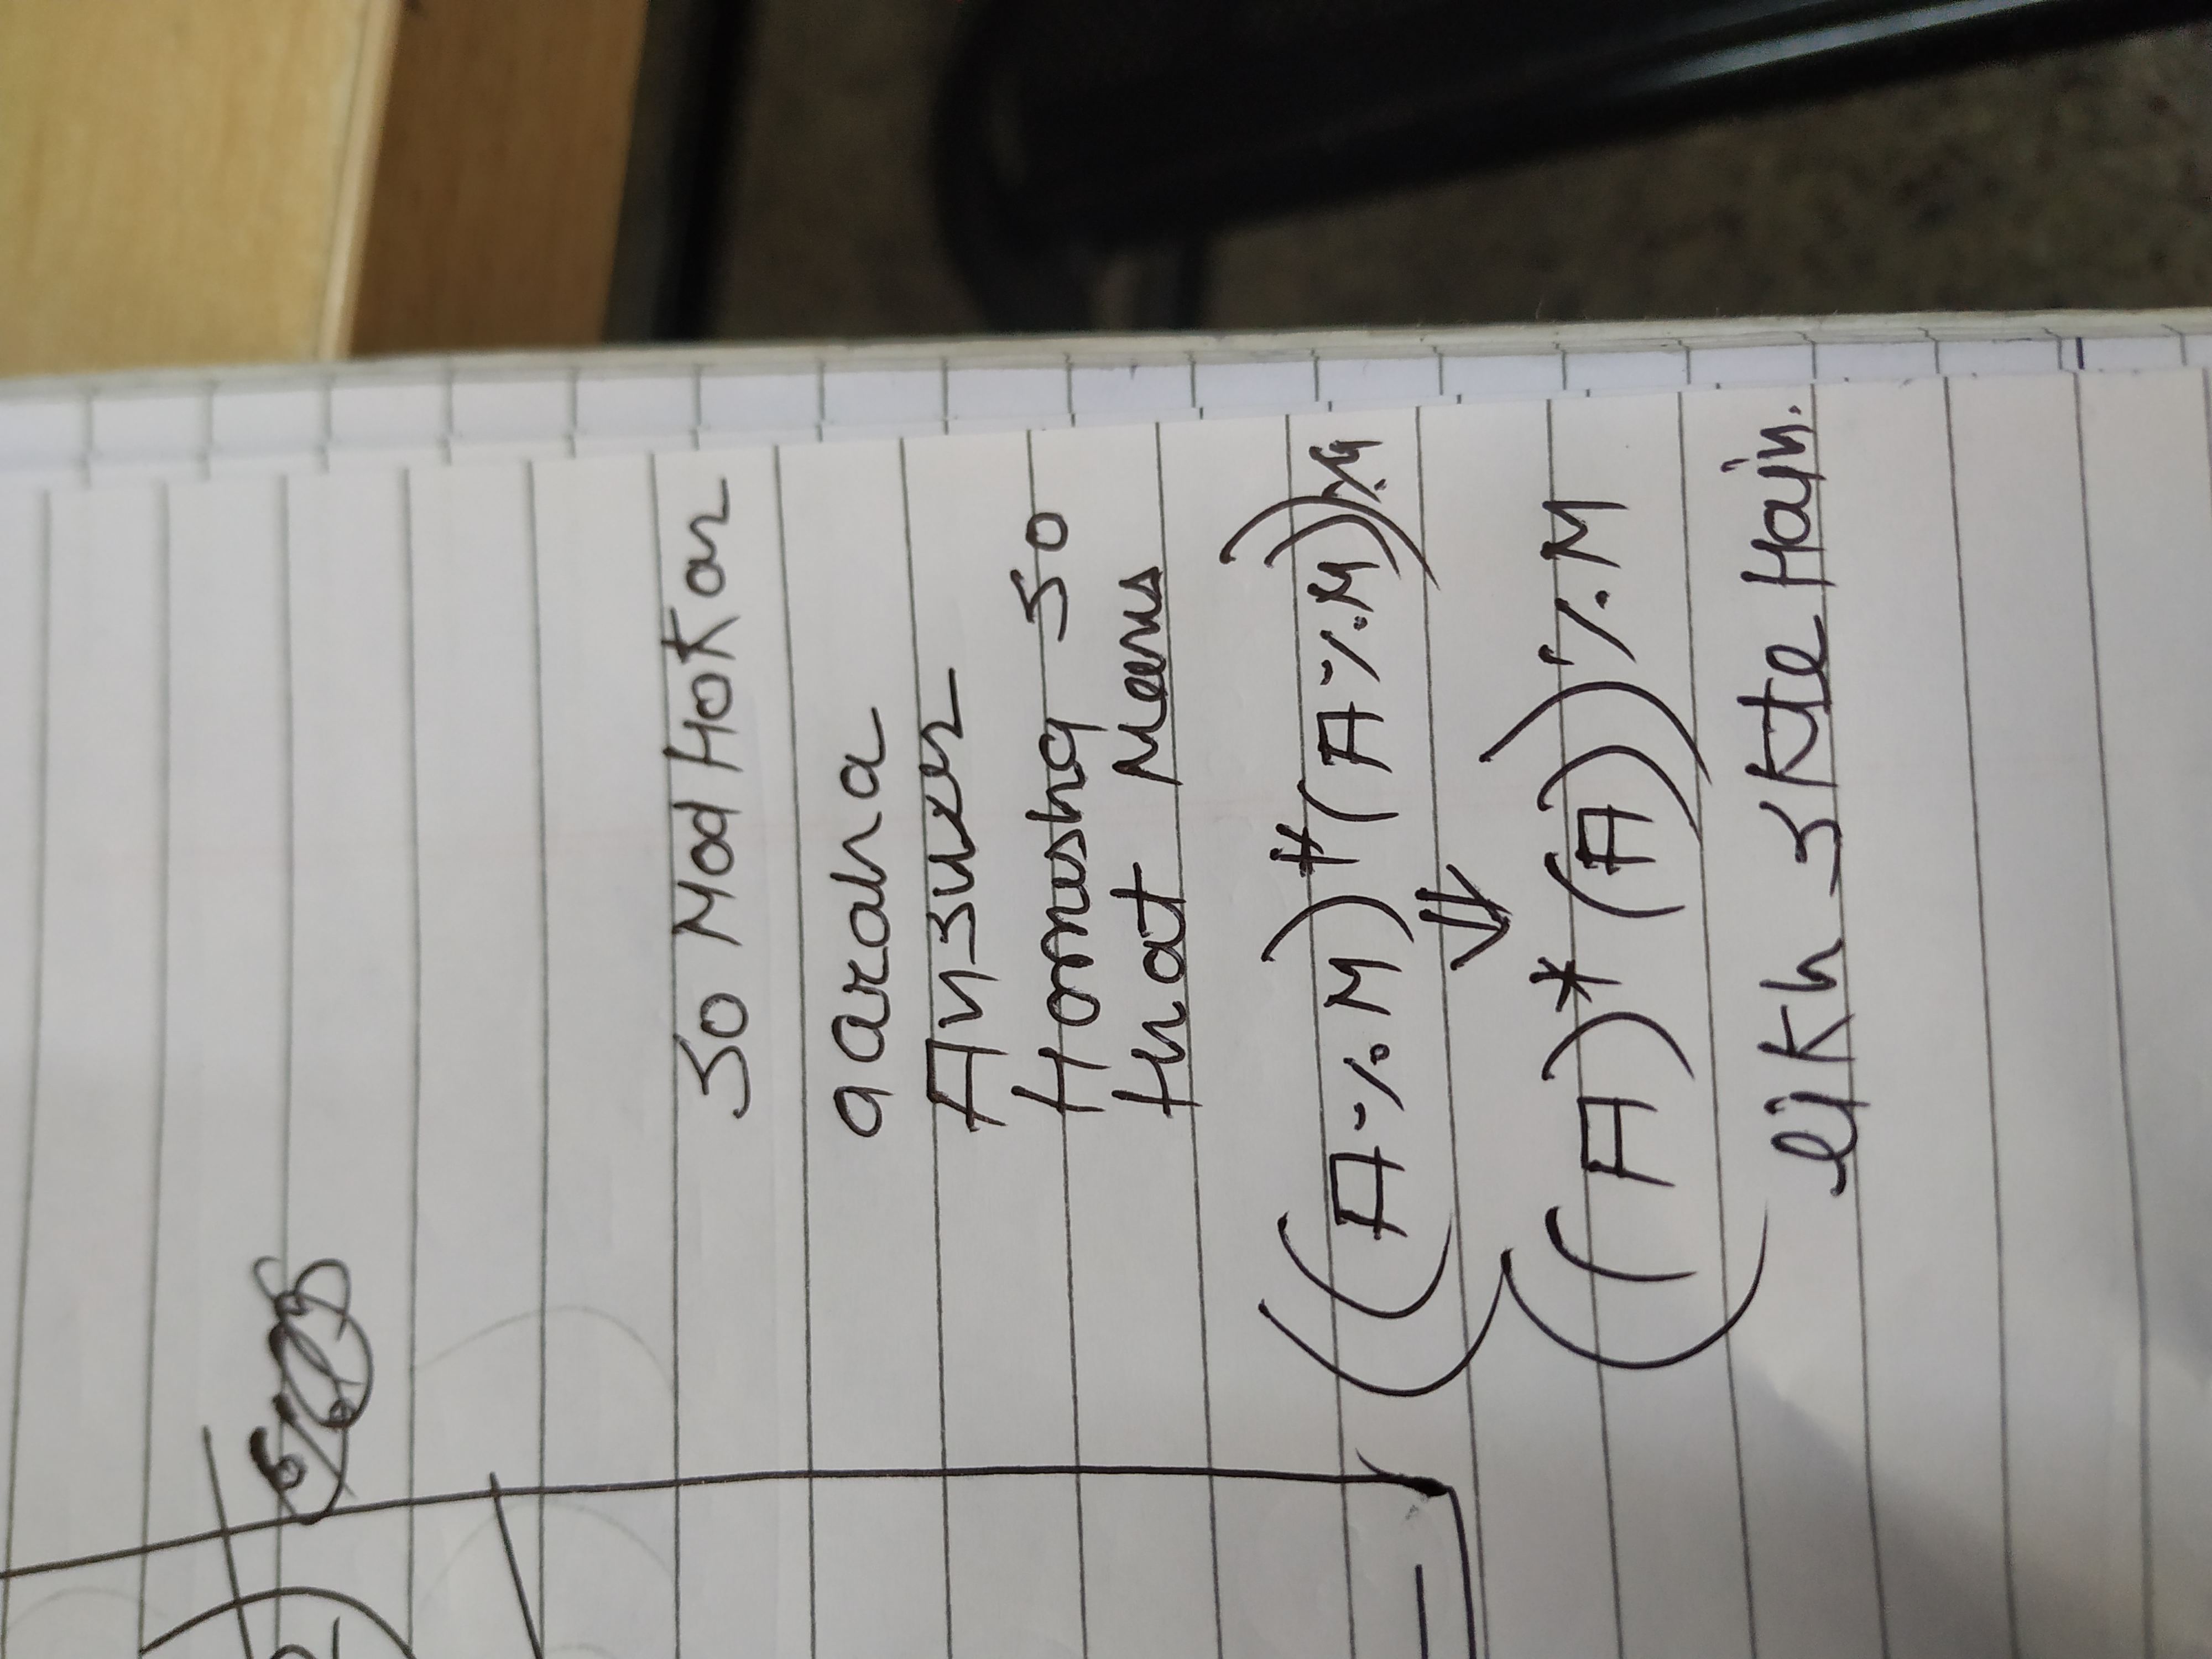 2
So Mod Hokar
aaraha
Answer
Homesha so
that Means
((A % M) * (A % M)) % M
⇓
((A) * (A)) % M
likh skte Hain.